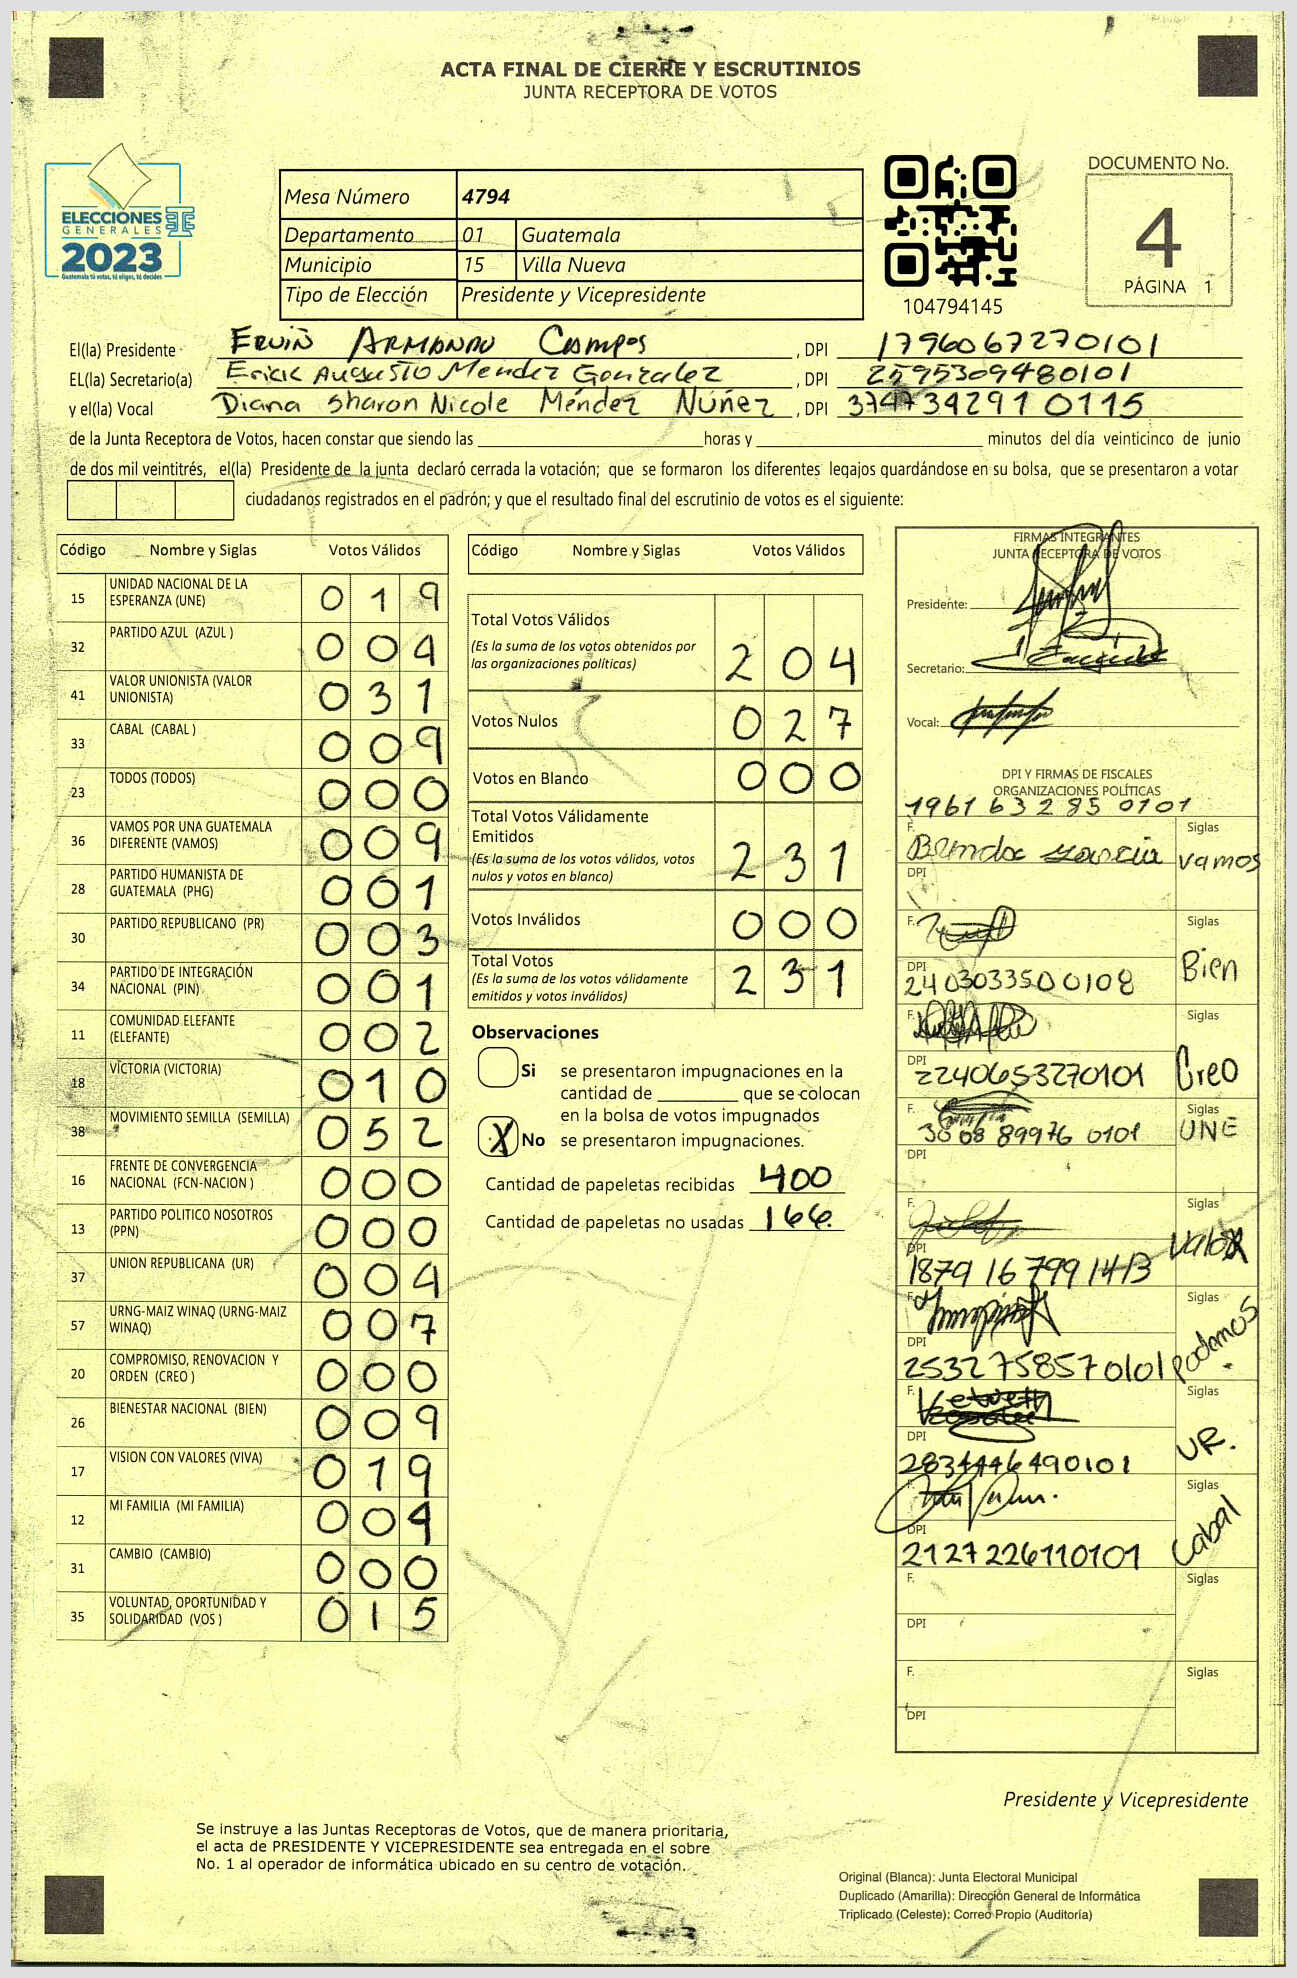 ACTA FINAL DE CIERRE Y ESCRUTINIOS
JUNTA RECEPTORA DE VOTOS
ELECCIONES
GENERALES
2023
Guatemala tú votas, tú eliges, tú decides
Mesa Número 4794
Departamento 01 Guatemala
Municipio 15 Villa Nueva
Tipo de Elección Presidente y Vicepresidente
104794145
DOCUMENTO No.
4
PÁGINA 1
El(la) Presidente Ervin Armando Campos , DPI 1796067270101
EL(la) Secretario(a) Erick Augusto Mendez Gonzalez , DPI 2595309480101
y el(la) Vocal Diana Sharon Nicole Méndez Núñez , DPI 3747342910115
de la Junta Receptora de Votos, hacen constar que siendo las horas y minutos del día veinticinco de junio
de dos mil veintitrés, el(la) Presidente de la junta declaró cerrada la votación; que se formaron los diferentes legajos guardándose en su bolsa, que se presentaron a votar
ciudadanos registrados en el padrón; y que el resultado final del escrutinio de votos es el siguiente:
Código Nombre y Siglas Votos Válidos
15 UNIDAD NACIONAL DE LA ESPERANZA (UNE) 019
32 PARTIDO AZUL (AZUL ) 004
41 VALOR UNIONISTA (VALOR UNIONISTA) 031
33 CABAL (CABAL ) 009
23 TODOS (TODOS) 000
36 VAMOS POR UNA GUATEMALA DIFERENTE (VAMOS) 009
28 PARTIDO HUMANISTA DE GUATEMALA (PHG) 001
30 PARTIDO REPUBLICANO (PR) 003
34 PARTIDO DE INTEGRACIÓN NACIONAL (PIN) 001
11 COMUNIDAD ELEFANTE (ELEFANTE) 002
18 VICTORIA (VICTORIA) 010
38 MOVIMIENTO SEMILLA (SEMILLA) 052
16 FRENTE DE CONVERGENCIA NACIONAL (FCN-NACION ) 000
13 PARTIDO POLITICO NOSOTROS (PPN) 000
37 UNION REPUBLICANA (UR) 004
57 URNG-MAIZ WINAQ (URNG-MAIZ WINAQ) 007
20 COMPROMISO, RENOVACION Y ORDEN (CREO ) 000
26 BIENESTAR NACIONAL (BIEN) 009
17 VISION CON VALORES (VIVA) 019
12 MI FAMILIA (MI FAMILIA) 009
31 CAMBIO (CAMBIO) 000
35 VOLUNTAD, OPORTUNIDAD Y SOLIDARIDAD (VOS ) 015
Código Nombre y Siglas Votos Válidos
Total Votos Válidos
(Es la suma de los votos obtenidos por
las organizaciones políticas) 204
Votos Nulos 027
Votos en Blanco 000
Total Votos Válidamente
Emitidos
(Es la suma de los votos válidos, votos
nulos y votos en blanco) 231
Votos Inválidos 000
Total Votos
(Es la suma de los votos válidamente
emitidos y votos inválidos) 231
Observaciones
Si se presentaron impugnaciones en la
cantidad de que se colocan
en la bolsa de votos impugnados
X No se presentaron impugnaciones.
Cantidad de papeletas recibidas 400
Cantidad de papeletas no usadas 166.
FIRMAS INTEGRANTES
JUNTA RECEPTORA DE VOTOS
Presidente:
Secretario:
Vocal:
DPI Y FIRMAS DE FISCALES
ORGANIZACIONES POLÍTICAS
1961 63285 0101
F. Brenda Garcia Siglas vamos
DPI
F. Siglas Bien
DPI 2403033500108
F. Siglas Creo
DPI 2240653270101
F. Siglas UNE
3008 89976 0101
DPI
F. Siglas Valor
DPI 1879 16 799 1413
F. Siglas podemos
DPI 2532758570101
F. Siglas UR.
DPI 2834446490101
F. Siglas Cabal
DPI 2127226110101
F. Siglas
DPI
F. Siglas
DPI
Presidente y Vicepresidente
Se instruye a las Juntas Receptoras de Votos, que de manera prioritaria,
el acta de PRESIDENTE Y VICEPRESIDENTE sea entregada en el sobre
No. 1 al operador de informática ubicado en su centro de votación.
Original (Blanca): Junta Electoral Municipal
Duplicado (Amarilla): Dirección General de Informática
Triplicado (Celeste): Correo Propio (Auditoría)